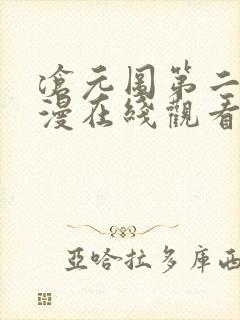 滄元圖第二
漫在綫觀看
亞哈拉多庫西